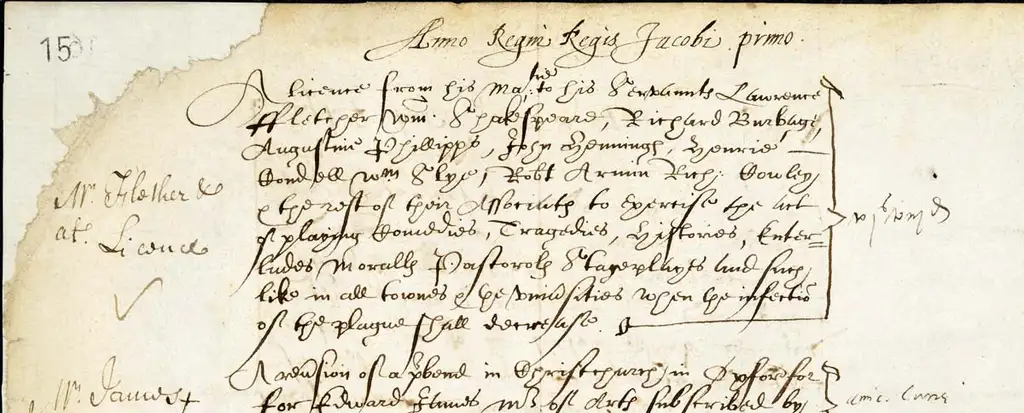 15
Anno Regni Regis Jacobi primo.
A licence from his Ma:tie to his Servaunts Lawrence
ffletcher Wm. Shakespeare, Richard Burbage,
Augustine Phillipps, John Hennings, Henrie
Mr. Flether &
Condell Wm Slye, Robt Armin Rich: Cowley,
& the rest of their Associats to exercise the art
al. Licence
of playing Comedies, Tragedies, Histories, Enter=
ludes Moralls Pastoralls Stageplayes and such
like in all townes & the universities when the infectio
of the plague shall decrease.
A reversion of a prbend in Christchurch in Oxford for
Mr. James
for Edward James Mr of Arts subscribed by